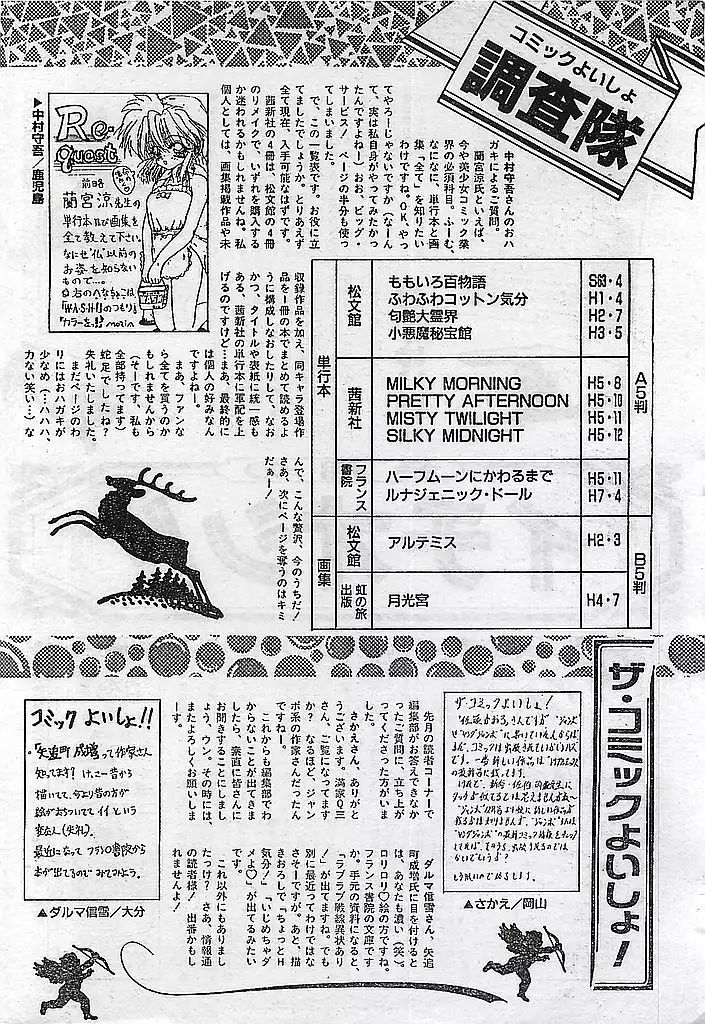 コミックよいしょ
調査隊
中村守吾さんのおハ
ガキによるご質問。
蘭宮涼氏といえば、
今や美少女コミック業
界の必須科目。ふーむ、
なになに、単行本と画
集「全て」を知りたい
わけですね。OK、やっ
てやろーじゃないですか(なーん
て、実は私自身がやってみたかっ
たんですよねー)おお、ビッグ・
サービス! ページの半分も使っ
てしまいました。
で、この一覧表です。お役に立
てましたでしょうか。とりあえず
全て現在、入手可能なはずです。
茜新社の4冊は、松文館の4冊
のリメイクで、いずれを購入する
か迷われるかもしれませんね。私
個人としては、画集掲載作品や未
収録作品を加え、同キャラ登場作
品を1冊の本でまとめて読めるよ
うに構成しなおしたりして、なお
かつ、タイトルや表紙に統一感も
ある、茜新社の単行本に軍配を上
げるのですけど…まあ、最終的に
は個人の好みなん
ですよねー。
まあ、ファンな
ら全てを買うのか
もしれませんから
(そーです、私も
全部持ってます)
蛇足でしたね?
失礼いたしました。
まだページのわ
りにはおハガキが
少なめ(…ハハハ、
力ない笑い…)な
んで、こんな贅沢、今のうちだ!
さあ、次にページを奪うのはキミ
だぁー!
Re・
quest
前略
蘭宮涼先生の
単行本及び画集を
全て教えて下さい。
なにせ"仏"以前の
お姿を知らない
もので…。
▶中村守吾/鹿児島
単行本
松文館
ももいろ百物語 S63・4
ふわふわコットン気分 H1・4
匂艶大霊界 H2・7
小悪魔秘宝館 H3・5
茜新社
MILKY MORNING H5・8
PRETTY AFTERNOON H5・10
MISTY TWILIGHT H5・11
SILKY MIDNIGHT H5・12
フランス書院
ハーフムーンにかわるまで H5・11
ルナジェニック・ドール H7・4
A5判
画集
松文館
アルテミス H2・3
虹の旅出版
月光宮 H4・7
B5判
ザ・コミックよいしょ!
ザ・コミックよいしょ!
▲さかえ/岡山
先月の読者コーナーで
編集部がお答えできなか
ったご質問に、立ち上が
ってくださった方がいま
した。
さかえさん、ありがと
うございます。満家Q三
さん、ご覧になってます
か? なるほど、ジャン
ボ系の作家さんだったん
ですねー。
これからも編集部でわ
からないことが出てきま
したら、素直に皆さんに
お聞きすることにしまし
ょう、ウン。その時には、
またよろしくお願いしま
ーす。
ダルマ信雪さん、矢追
町成増氏に目を付けると
は、あなたも濃い(笑)。
ロリロリ♡絵の方ですね。
フランス書院の文庫です
か。手元の資料になると、
「ラブラブ戦線異状あり
!」が出てますね。でも、
別に最近ってわけではな
さそーですが。あと、描
きおろしで「ちょっとH
気分!」「いじめちゃダ
メよ♡」が出てるみたい
です。
これ以外にもありまし
たっけ? さあ、情報通
の読者様! 出番かもし
れませんよ!
コミック よいしょ!!
「矢追町 成増」って作家さん
知ってます? けっこー昔から
描いてて、今より昔の方が
絵がおちついてて イイ という
変な人(失礼)。
最近になって フランス書院から
本が出てるので みてみよう。
▲ダルマ信雪/大分